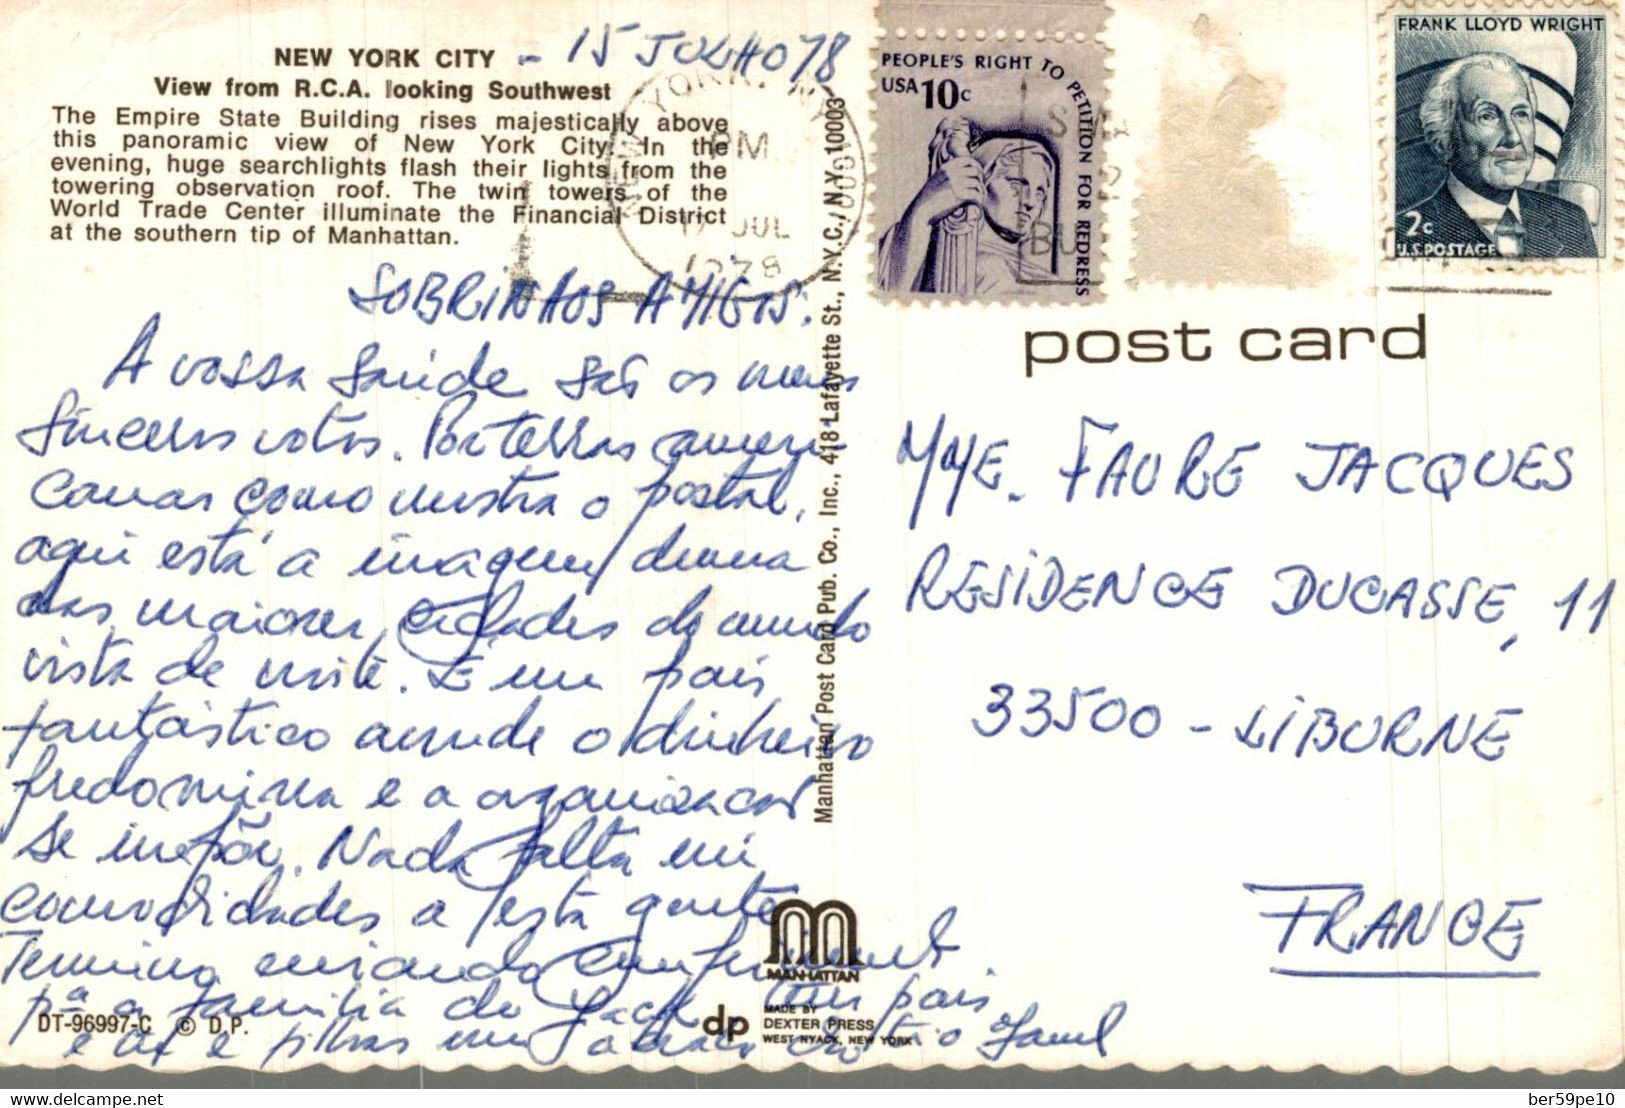 NEW YORK CITY - 15 JULHO 78
View from R.C.A. looking Southwest
The Empire State Building rises majestically above
this panoramic view of New York City. In the
evening, huge searchlights flash their lights from the
towering observation roof. The twin towers of the
World Trade Center illuminate the Financial District
at the southern tip of Manhattan.
NEW YORK, NY
PM
17 JUL
1978
PEOPLE'S RIGHT TO PETITION FOR REDRESS
USA 10c
FRANK LLOYD WRIGHT
2c
U.S. POSTAGE
SOBRINHOS AMIGOS:
A vossa saúde são os meus
sinceros votos. Por terras ameri
canas como mostra o postal,
aqui está a imagem duma
das maiores cidades do mundo
vista de noite. É um país
fantástico aonde o dinheiro
predomina e a organização
se impõe. Nada falta em
comodidades a esta gente
Termino enviando
pª a família do Jack
e filhas um
Manhattan Post Card Pub. Co., Inc., 418 Lafayette St., N.Y.C., N.Y. 10003
post card
MME. FAURE JACQUES
RESIDENCE DUCASSE, 11
33500 - LIBURNE
FRANCE
MANHATTAN
DT-96997-C © D.P.
dp
MADE BY
DEXTER PRESS
WEST NYACK, NEW YORK
delcampe.net
ber59pe10